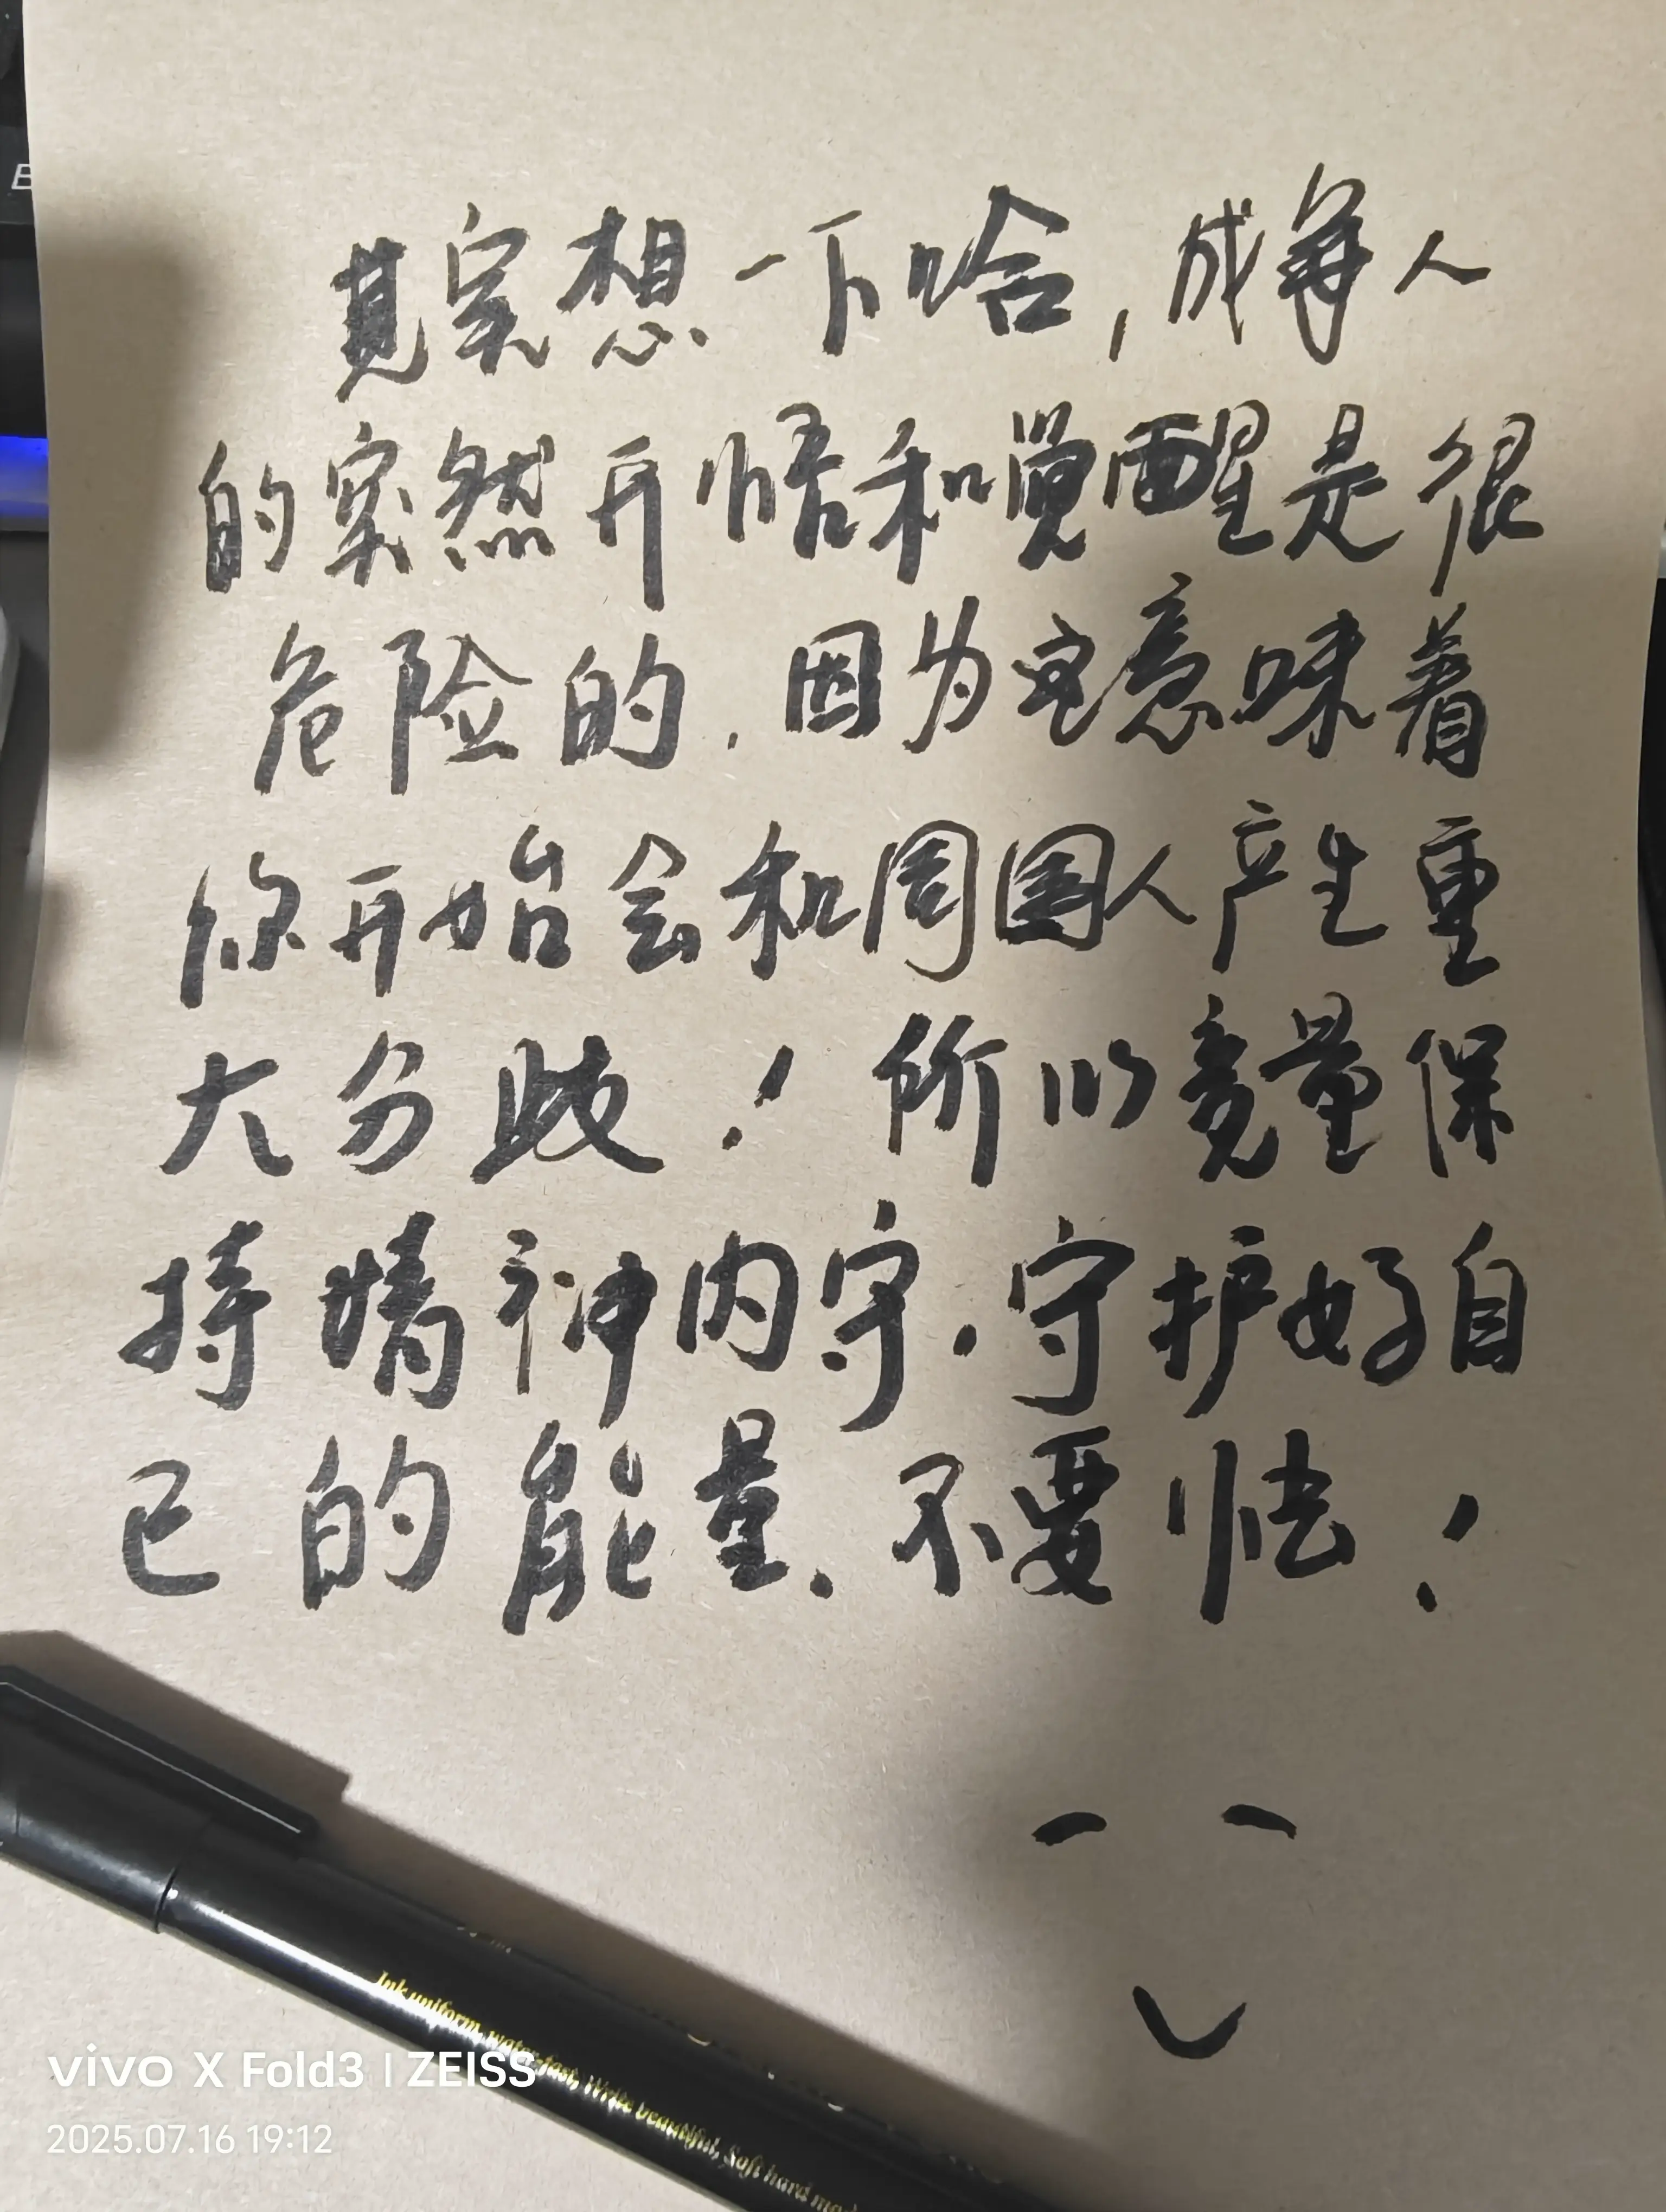 其实想一下哈,成年人
的突然开悟和觉醒是很
危险的.因为它意味着
你开始会和周围人产生重
大分歧!所以竟量保
持精神内守.守护好自
己的能量.不要怯!
vivo X Fold3 | ZEISS
2025.07.16 19:12
Ink uniform, water-fast, Write beautiful, Soft hard mod